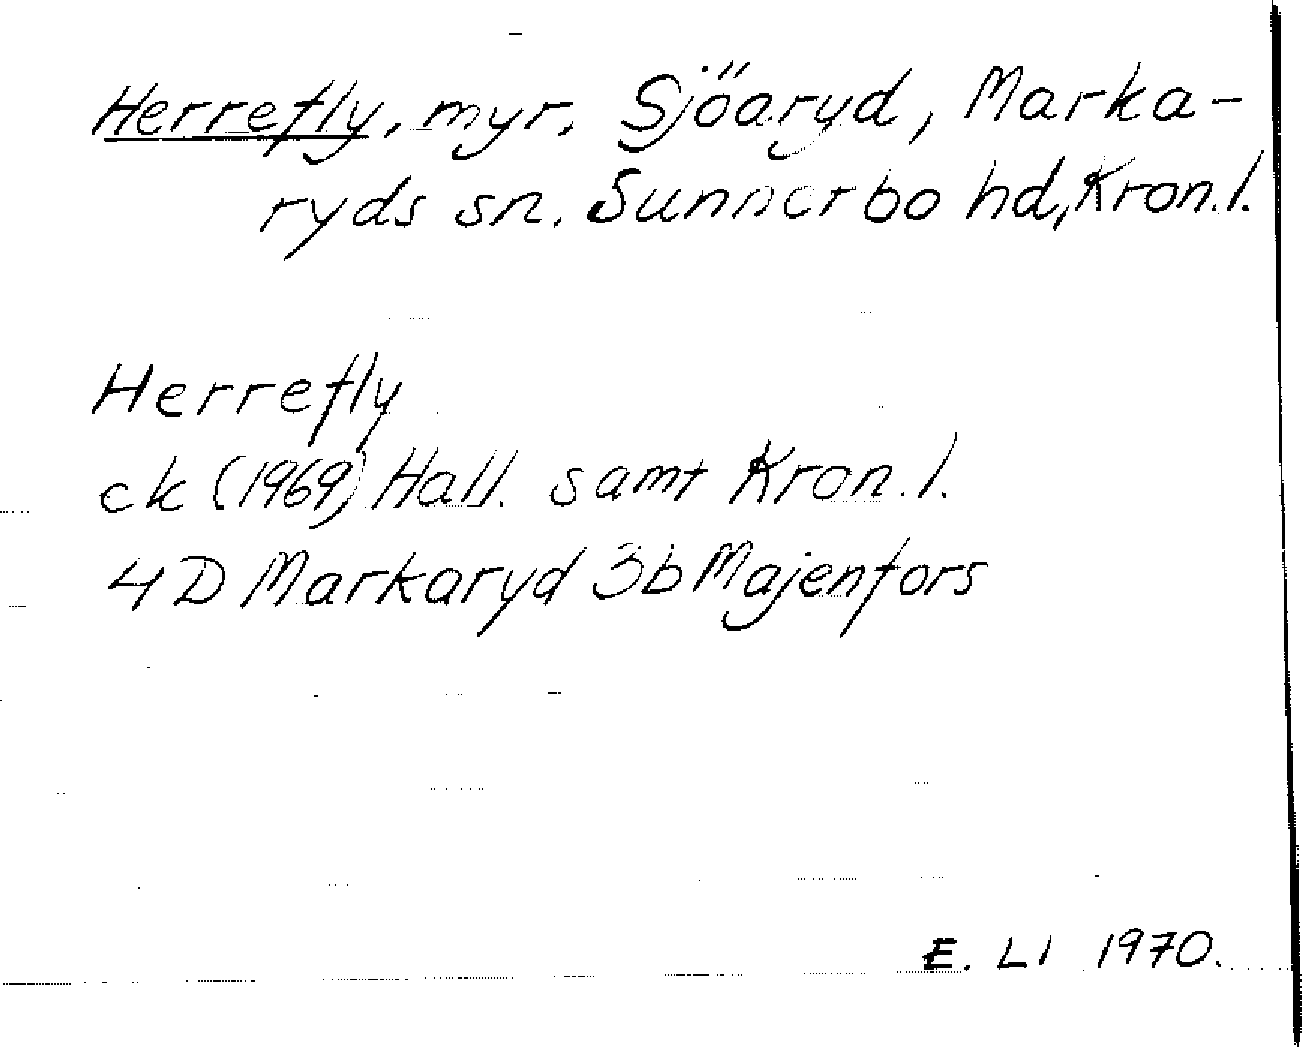 Herrefly, myr, Sjöaryd, Marka-
ryds sn. Sunnerbo hd, Kron.l.
Herrefly
ek (1969) Hall. samt Kron.l.
4D Markaryd 3b Majenfors
E. LI 1970.